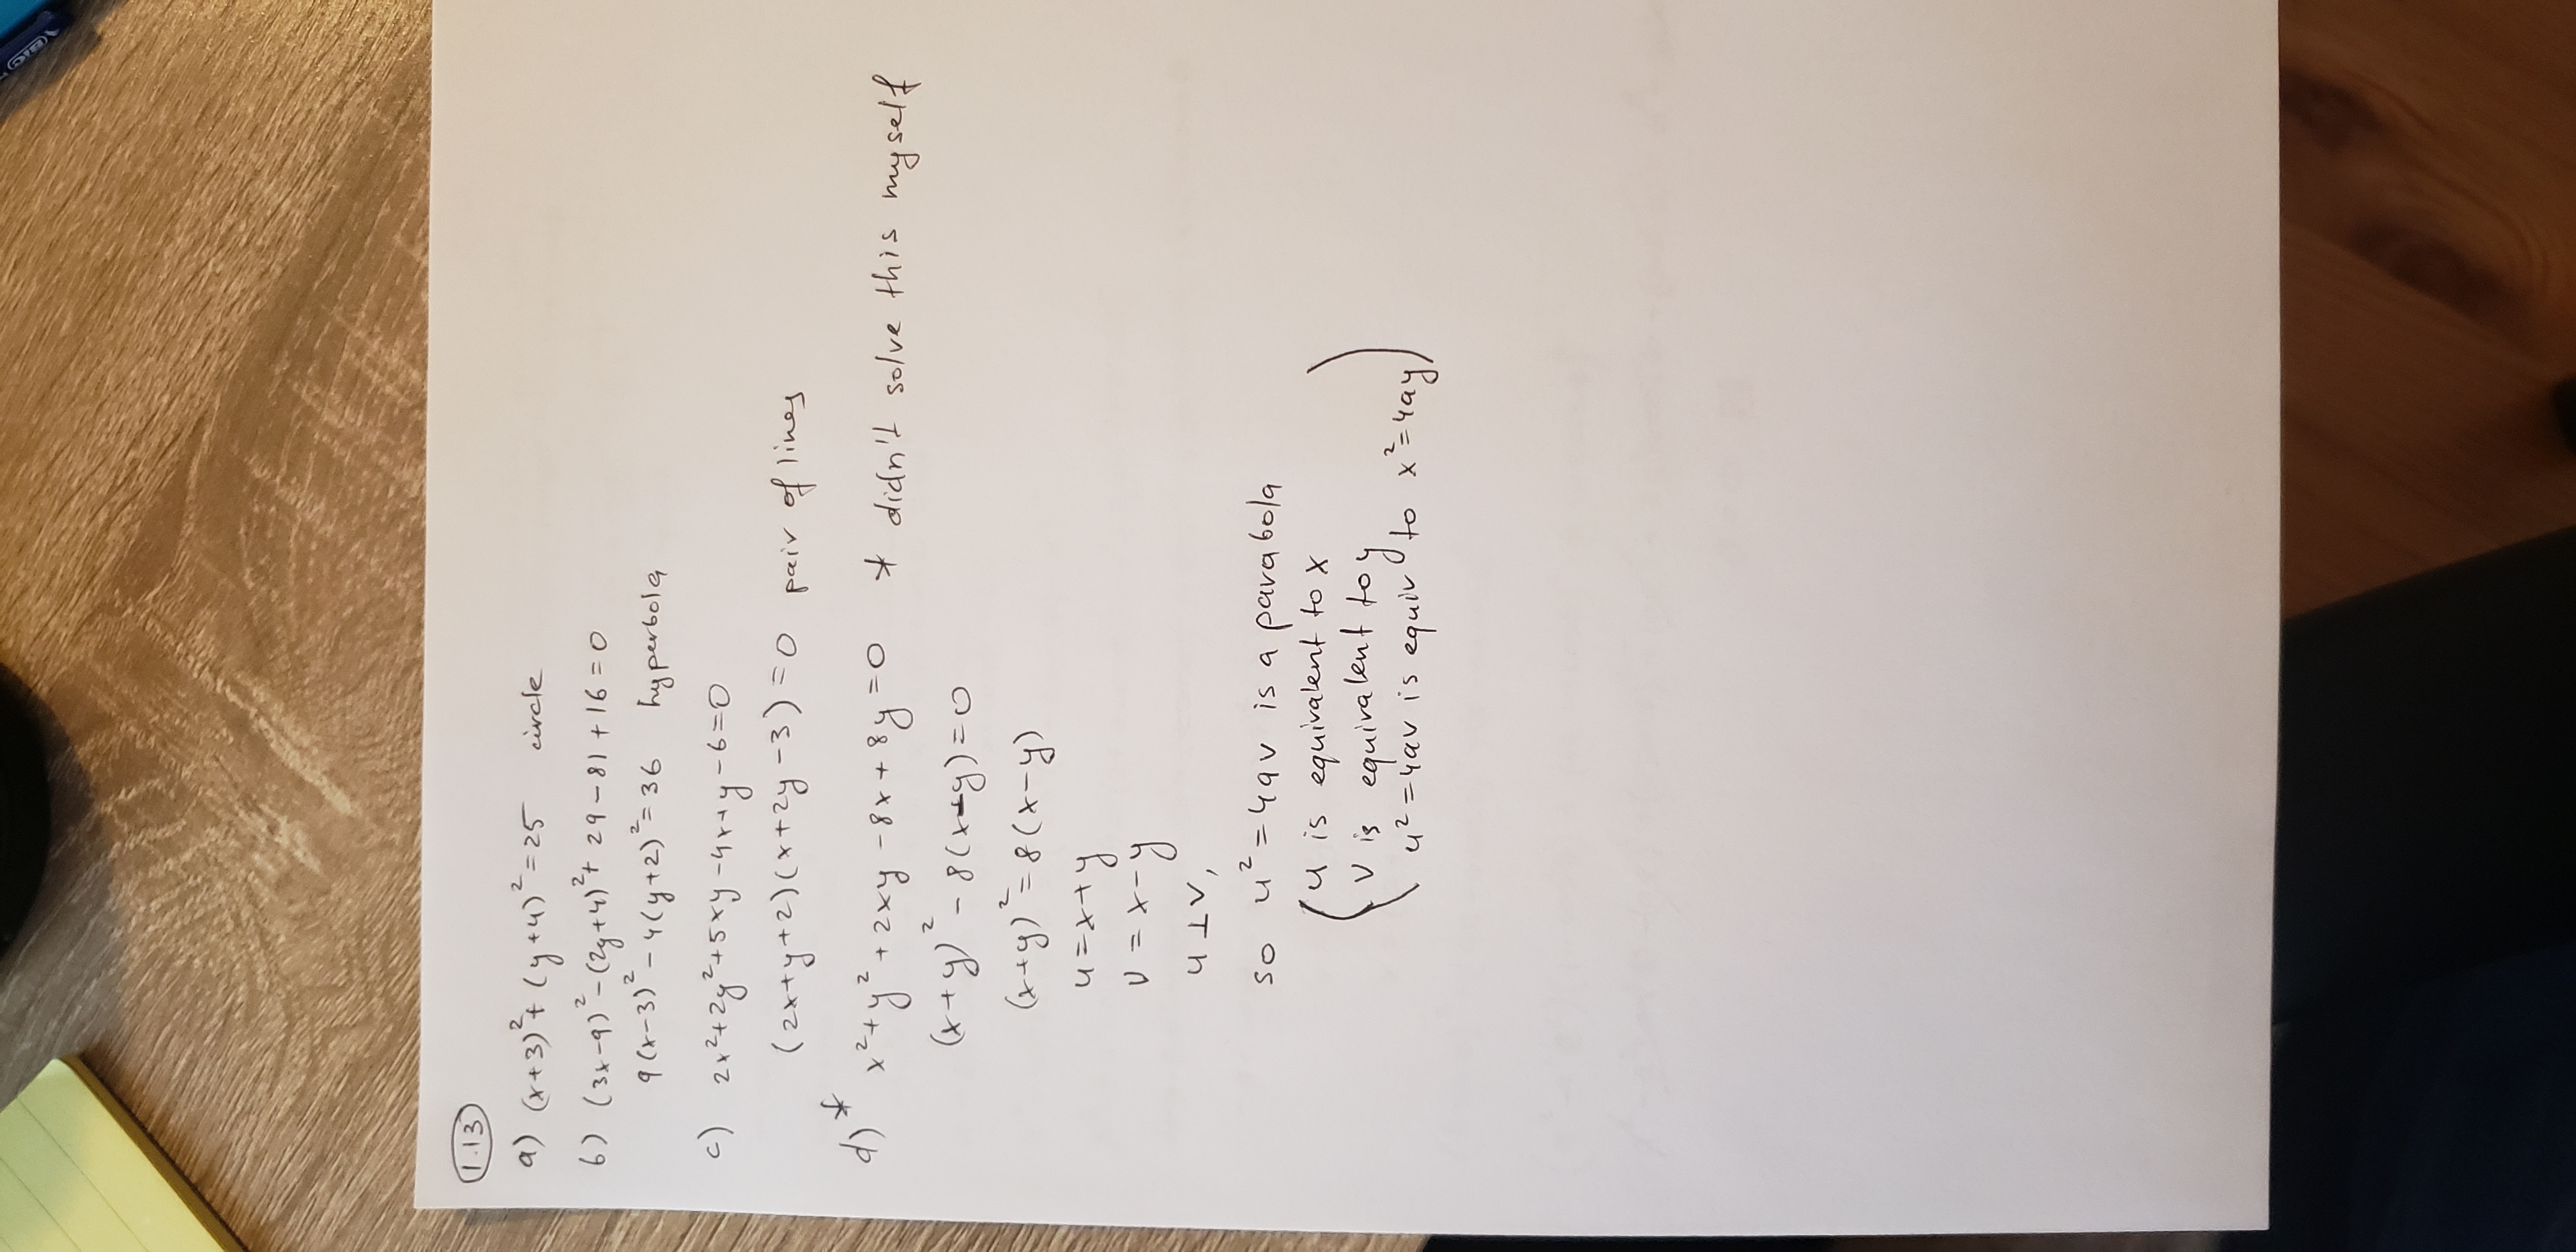 BIC
1.13
a) (x+3)²+(y+4)²=25 circle
b) (3x-9)²-(2y+4)²+29-81+16=0
9(x-3)²-4(y+2)²=36 hyperbola
c) 2x²+2y²+5xy-4x+y-6=0
(2x+y+2)(x+2y-3)=0 pair of lines
d)* x²+y²+2xy-8x+8y=0 * didn't solve this myself
(x+y)²-8(x-y)=0
(x+y)²=8(x-y)
u=x+y
v=x-y
u⊥v,
so u²=4av is a parabola
(u is equivalent to x
v is equivalent to y
u²=4av is equiv to x²=4ay)